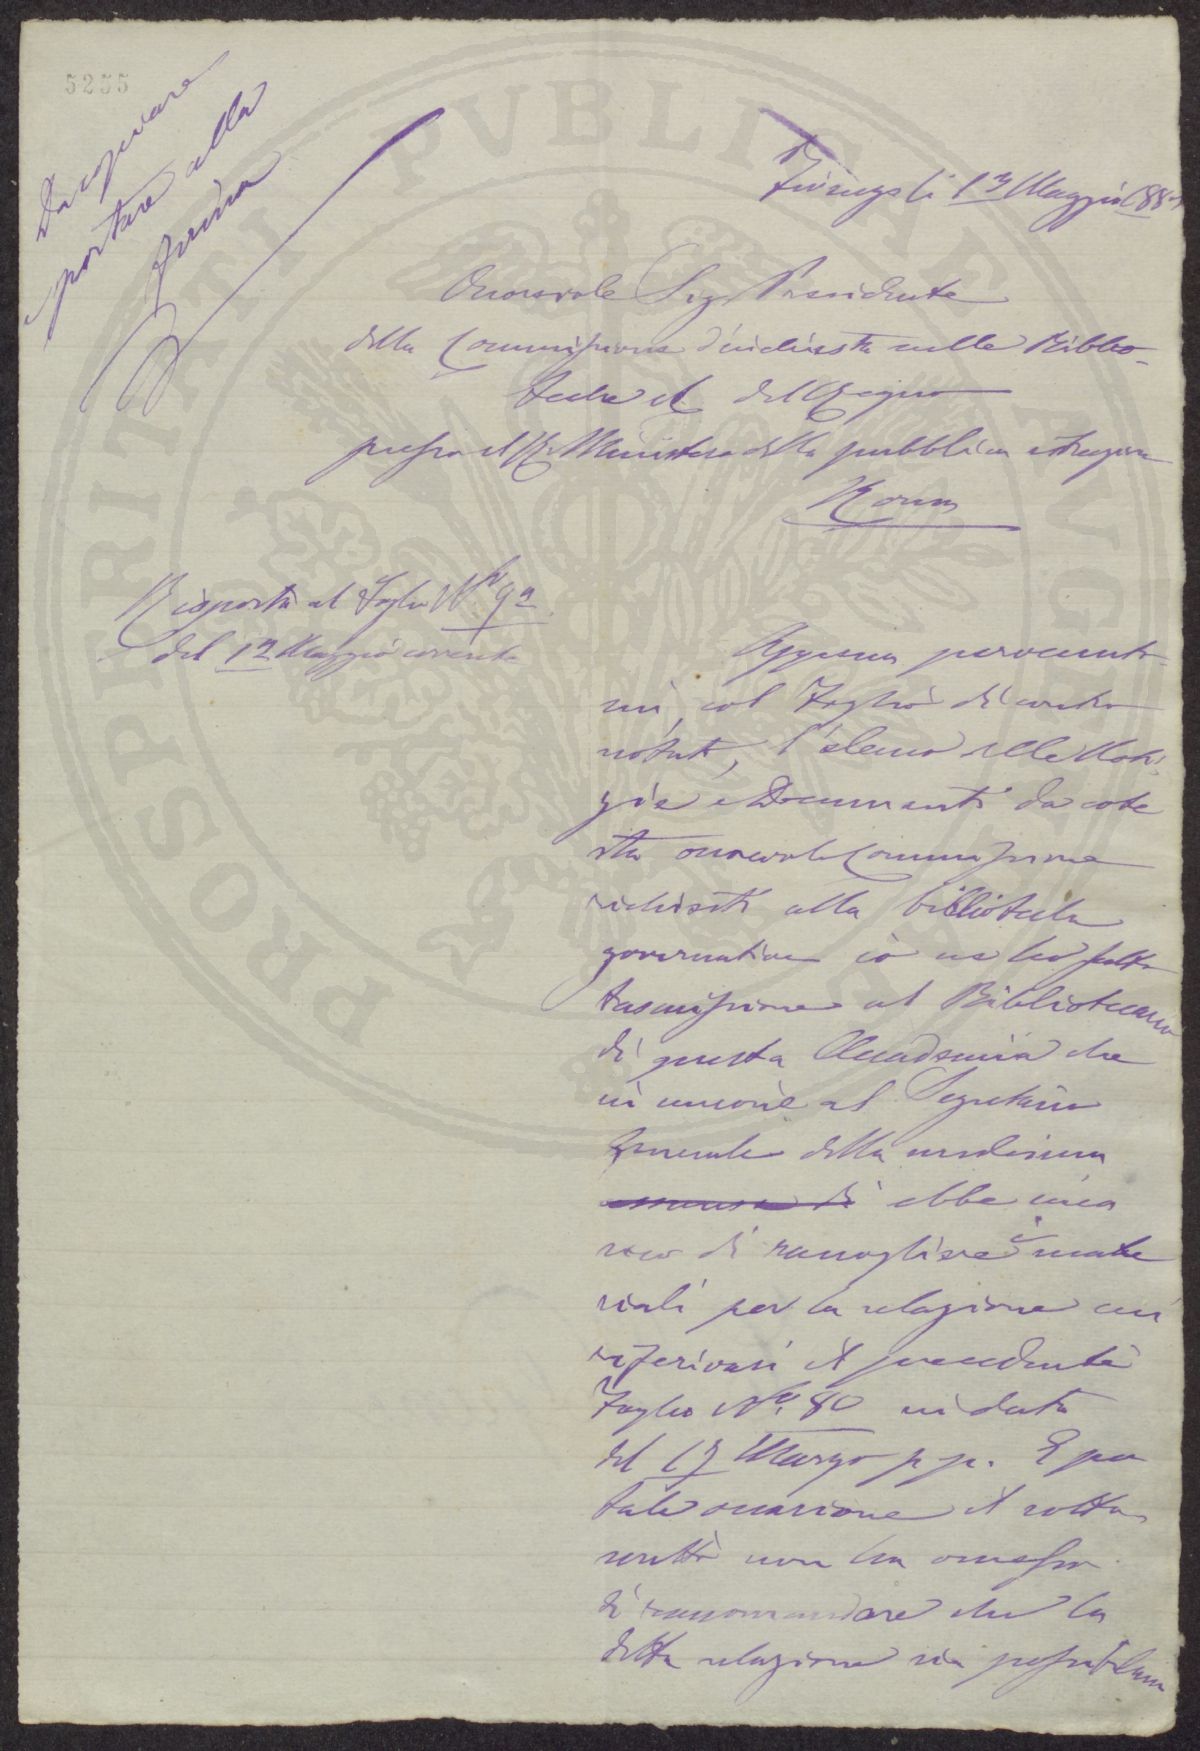 5255
Da copiare
e portare alla
firma
Firenze li 13 Maggio 188
Onorevole Sig Presidente
della Commissione d'inchiesta sulle Biblio-
teche del Regno
presso il R. Ministero della pubblica istruzione
Roma
Risposta al foglio N° 92
del 12 Maggio corrente
Appena pervenuto-
mi, col Foglio di contro
notato, l'elenco delle Noti-
zie e Documenti da code
sta onorevole Commissione
richiesti alla biblioteca
governativa io ne ho fatta
trasmissione al Bibliotecario
di questa Accademia che
in unione al Segretario
Generale della medesima
ebbe inca
rico di raccogliere i mate
riali per la relazione cui
riferivasi il precedente
Foglio N° 80 in data
del 17 Marzo p. p. E per
tale occasione il sotto
scritto non ha omesso
di raccomandare che la
detta relazione sia possibilm
PROSPERITATI PVBLICAE AVGENDAE